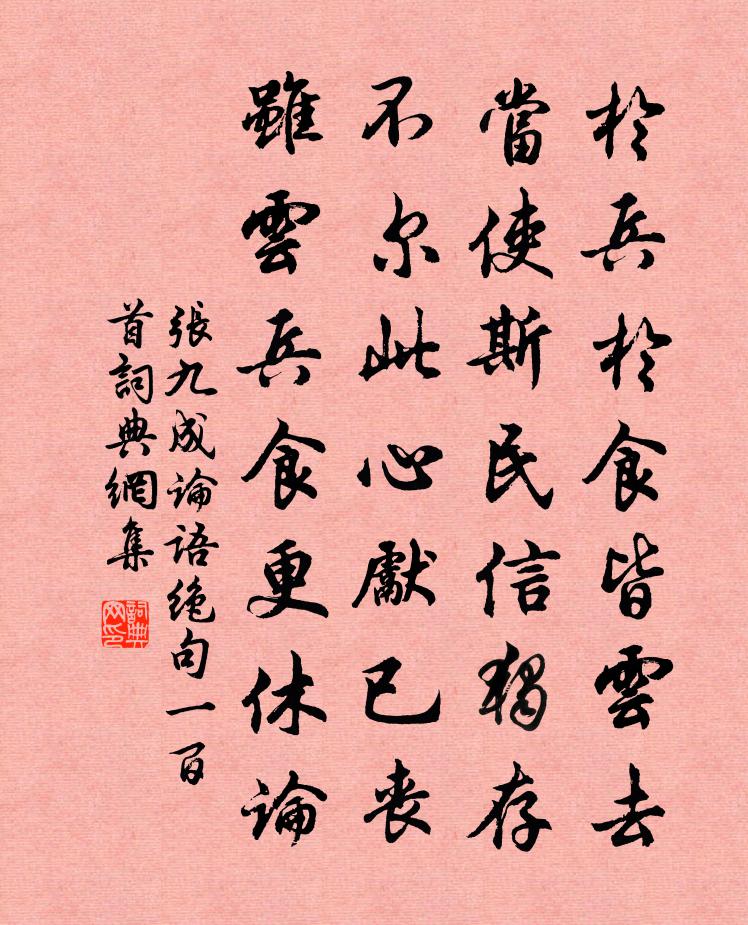 於兵於食皆雲去
當使斯民信獨存
不尔此心獻已丧
雖雲兵食更休論
張九成論語绝句一百
首詞典網集
詞典网印